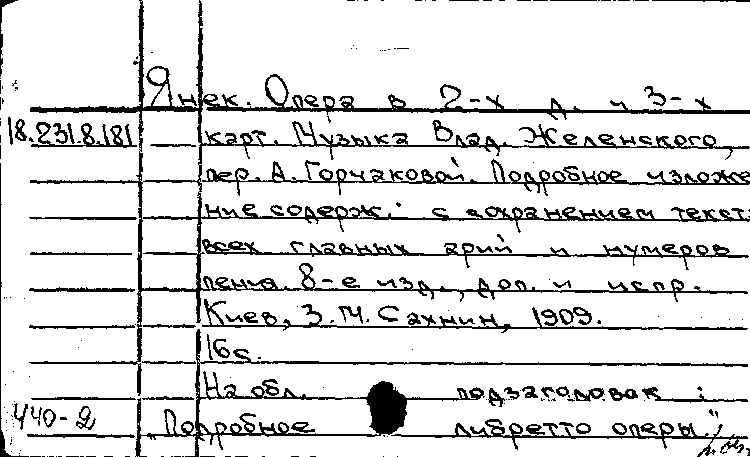 Янек. Опера в 2-х д. и 3-х
18.231.8.181 карт. Музыка Влад. Желенского,
пер. А. Горчаковой. Подробное изложе
ние содерж. с сохранением текста
всех главных арий и нумеров
пения. 8-е изд., доп. и испр.
Киев, З.М. Сахнин, 1909.
16 с.
На обл. подзаголовок:
440-2 „Подробное либретто оперы"